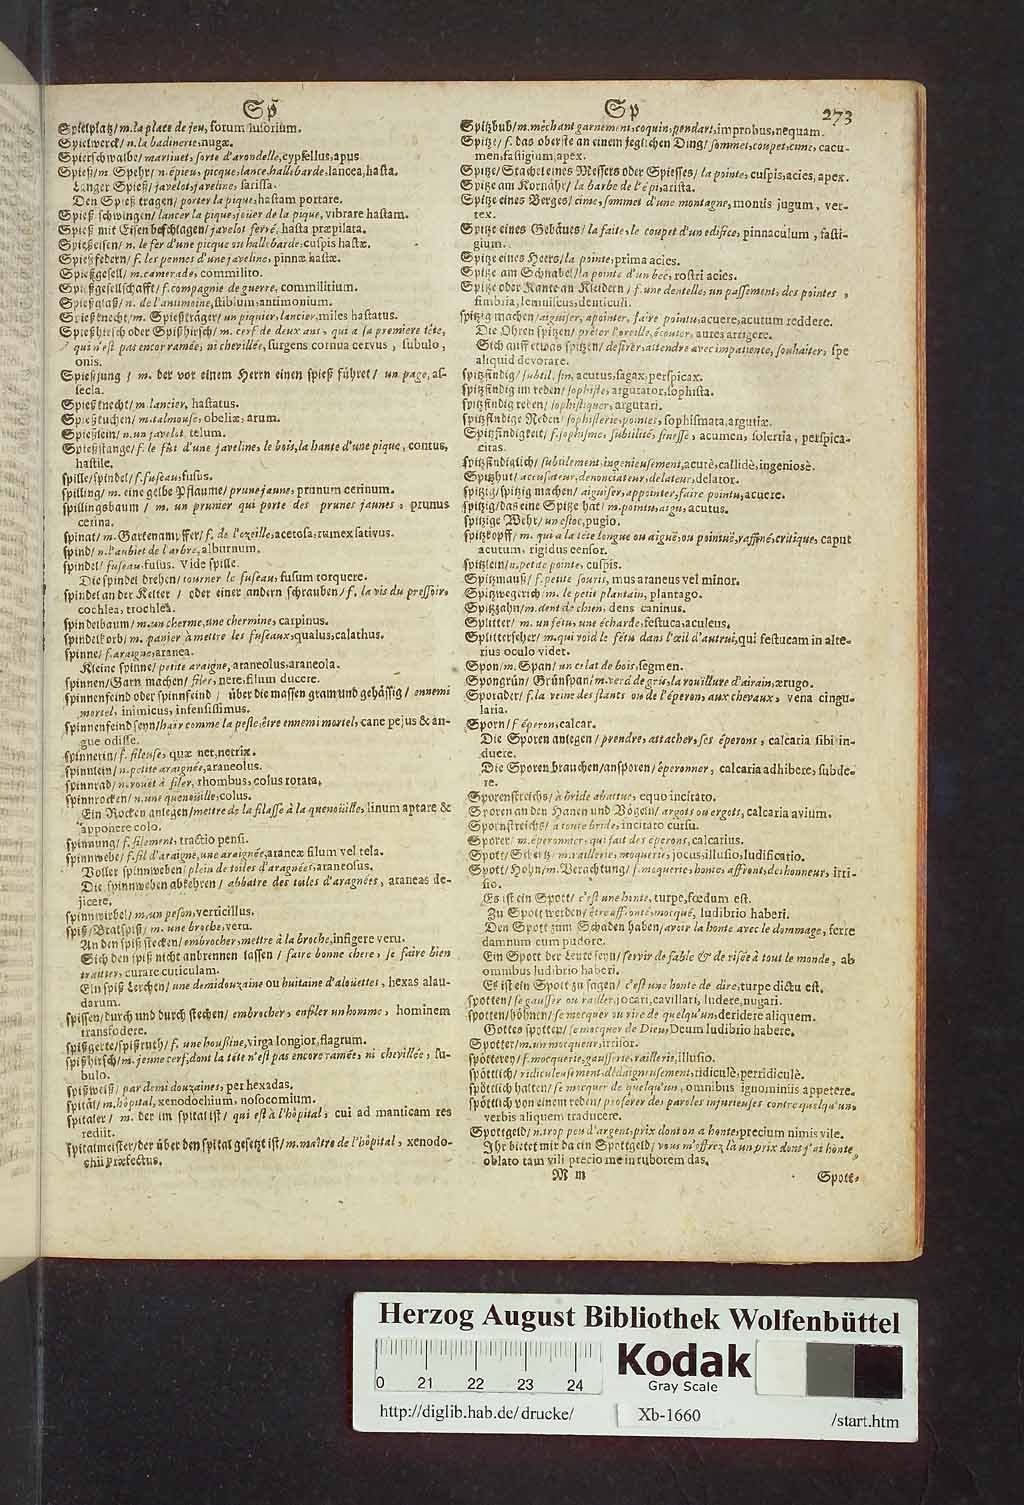 Sp
Spielplatz/ m. la place de jeu, forum lusorium.
Spielwerck/ n. la badinerie, nugæ.
Spierschwalbe/ martinet, sorte d'arondelle, cypsellus, apus
Spieß/ m. Spehr/ n. épieu, picque, lance, hallebarde, lancea, hasta.
Langer Spieß/ javelot, javeline, sarissa.
Den Spieß tragen/ porter la pique, hastam portare.
Spieß schwingen/ lancer la pique, joüer de la pique, vibrare hastam.
Spieß mit Eisen beschlagen/ javelot ferré, hasta præpilata.
Spießeisen/ n. le fer d'une picque ou hallebarde, cuspis hastæ.
Spießfedern/ f. les pennes d'une javeline, pinnæ hastæ.
Spießgesell/ m. camerade, commilito.
Spießgesellschafft/ f. compagnie de guerre, commilitium.
Spießglaß/ n. de l'antimoine, stibium, antimonium.
Spießknecht/ m. Spießträger/ un piquier, lancier, miles hastatus.
Spießhirsch oder Spißhirsch/ m. cerf de deux ans, qui a sa premiere tête,
qui n'est pas encor ramée, ni chevillée, surgens cornua cervus, subulo,
onis.
Spießjung/ m. der vor einem Herrn einen spieß führet/ un page, as-
secla.
Spießknecht/ m. lancier, hastatus.
Spießkuchen/ m. talmouse, obeliæ, arum.
Spießlein/ n. un javelot, telum.
Spießstange/ f. le fût d'une javeline, le bois, la hante d'une pique, contus,
hastile.
spille/ spindel/ f. fuseau, fusus.
spilling/ m. eine gelbe Pflaume/ prune jaune, prunum cerinum.
spillingsbaum/ m. un prunier qui porte des prunes jaunes, prunus
cerina.
spinat/ m. Gartenampffer/ f. de l'ozeille, acetosa, rumex sativus.
spind/ n. l'aubiet de l'arbre, alburnum.
spindel/ fuseau, fusus. Vide spille.
Die spindel drehen/ tourner le fuseau, fusum torquere.
spindel an der Kelter/ oder einer andern schrauben/ f. la vis du pressoir,
cochlea, trochlea.
spindelbaum/ m. un cherme, une chermine, carpinus.
spindelkorb/ m. panier à mettre les fuseaux, qualus, calathus.
spinne/ f. araigne, aranea.
Kleine spinne/ petite araigne, araneolus, araneola.
spinnen/ Garn machen/ filer, nere, filum ducere.
spinnenfeind oder spinnfeind/ über die massen gram und gehässig/ ennemi
mortel, inimicus, infensissimus.
spinnenfeind seyn/ haïr comme la peste, être ennemi mortel, cane pejus & an-
gue odisse.
spinnerin/ f. fileuse, quæ net, netrix.
spinnlein/ n. petite araignée, araneolus.
spinnrad/ n. rouët à filer, rhombus, colus rotata.
spinnrocken/ n. une quenoüille, colus.
Ein Rocken anlegen/ mettre de la filasse à la quenoüille, linum aptare &
apponere colo.
spinnung/ f. filement, tractio pensi.
spinnwebe/ f. fil d'araigne, une araignée, araneæ filum vel tela.
Voller spinnweben/ plein de toiles d'aragnées, araneosus.
Die spinnweben abkehren/ abbatre des toiles d'aragnées, araneas de-
jicere.
spinnwirbel/ m. un peson, verticillus.
spiß/ Bratspiß/ m. une broche, veru.
An den spiß stecken/ embrocher, mettre à la broche, infigere veru.
Sich den spiß nicht anbrennen lassen/ faire bonne chere, se faire bien
traitter, curare cuticulam.
Ein spiß Lerchen/ une demidouzaine ou huitaine d'alouëttes, hexas alau-
darum.
spissen/ durch und durch stechen/ embrocher, enfiler un homme, hominem
transfodere.
spißgerte/ spißruth/ f. une houssine, virga longior, flagrum.
spißhirsch/ m. jeune cerf, dont la tête n'est pas encore ramée, ni chevillée, su-
bulo.
spißweiß/ par demi douzaines, per hexadas.
spital/ m. hôpital, xenodochium, nosocomium.
spitaler/ m. der im spital ist/ qui est à l'hôpital, cui ad manticam res
rediit.
spitalmeister/ der über den spital gesetzt ist/ m. maître de l'hôpital, xenodo-
chii præfectus.
Sp 273
Spitzbub/ m. méchant garnement, coquin, pendart, improbus, nequam.
Spitze/ f. das oberste an einem jeglichen Ding/ sommet, coupet, cime, cacu-
men, fastigium, apex.
Spitze/ Stachel eines Messers oder Spiesses/ la pointe, cuspis, acies, apex.
Spitze am Kornähr/ la barbe de l'épi, arista.
Spitze eines Berges/ cime, sommet d'une montagne, montis jugum, ver-
tex.
Spitze eines Gebäues/ la faite, le coupet d'un edifice, pinnaculum, fasti-
gium.
Spitze eines Heers/ la pointe, prima acies.
Spitze am Schnabel/ la pointe d'un bec, rostri acies.
Spitze oder Kante an Kleidern/ f. une dentelle, un passement, des pointes,
fimbria, lemniscus, denticuli.
spitzig machen/ aiguiser, apointer, faire pointu, acuere, acutum reddere.
Die Ohren spitzen/ prêter l'oreille, écouter, aures arrigere.
Sich auff etwas spitzen/ desirer, attendre avec impatience, souhaiter, spe
aliquid devorare.
spitzfindig/ subtil, fin, acutus, sagax, perspicax.
spitzfindig im reden/ sophiste, argutator, sophista.
spitzfindig reden/ sophistiquer, argutari.
spitzfindige Reden/ sophisterie, pointes, sophismata, argutiæ.
Spitzfindigkeit/ f. sophisme, subtilité, finesse, acumen, solertia, perspica-
citas.
spitzfindiglich/ subtilement, ingenieusement, acutè, callidè, ingeniosè.
Spitzhut/ accusateur, denonciateur, delateur, delator.
spitzig/ spitzig machen/ aiguiser, appointer, faire pointu, acuere.
spitzig/ das eine Spitze hat/ m. pointu, aigu, acutus.
spitzige Wehr/ un estoc, pugio.
spitzkopff/ m. qui a la tête longue ou aiguë, ou pointuë, raffiné, critique, caput
acutum, rigidus censor.
spitzlein/ n. petite pointe, cuspis.
Spitzmauß/ f. petite souris, mus araneus vel minor.
Spitzwegerich/ m. le petit plantain, plantago.
Spitzzahn/ m. dent de chien, dens caninus.
Splitter/ m. un fétu, une écharde, festuca, aculeus.
Splitterseher/ m. qui void le fétu dans l'œil d'autrui, qui festucam in alte-
rius oculo videt.
Spon/ m. Span/ un eclat de bois, segmen.
Spongrün/ Grünspan/ m. verd de gris, la rouillure d'airain, ærugo.
Sporader/ f. la veine des flants ou de l'éperon, aux chevaux, vena cingu-
laria.
Sporn/ f. éperon, calcar.
Die Sporen anlegen/ prendre, attacher, ses éperons, calcaria sibi in-
duere.
Die Sporen brauchen/ ansporen/ éperonner, calcaria adhibere, subde-
re.
Sporenstreichs/ à bride abattue, equo incitato.
Sporen an den Hanen und Vögeln/ argots ou ergots, calcaria avium.
Spornstreichs/ à toute bride, incitato cursu.
Sporer/ m. éperonnier, qui fait des éperons, calcarius.
Spott/ Schertz/ m. raillerie, moquerie, jocus, illusio, ludificatio.
Spott/ Hohn/ m. Verachtung/ f. mocquerie, honte, affront, deshonneur, irri-
sio.
Es ist ein Spott/ c'est une honte, turpe, fœdum est.
Zu Spott werden/ être affronté, mocqué, ludibrio haberi.
Den Spott zum Schaden haben/ avoir la honte avec le dommage, ferre
damnum cum pudore.
Ein Spott der Leute seyn/ servir de fable & de risée à tout le monde, ab
omnibus ludibrio haberi.
Es ist ein Spott zu sagen/ c'est une honte de dire, turpe dictu est.
spotten/ se gausser ou railler, jocari, cavillari, ludere, nugari.
spotten/ höhnen/ se mocquer ou rire de quelqu'un, deridere aliquem.
Gottes spotten/ se mocquer de Dieu, Deum ludibrio habere.
Spötter/ m. un mocqueur, irrisor.
spötterey/ f. mocquerie, gausserie, raillerie, illusio.
spöttlich/ ridiculeusement, dédaigneusement, ridiculè, perridiculè.
spöttlich halten/ se mocquer de quelqu'un, omnibus ignominiis appetere.
spöttlich von einem reden/ proferer des paroles injurieuses contre quelqu'un,
verbis aliquem traducere.
Spottgeld/ n. trop peu d'argent, prix dont on a honte, precium nimis vile.
Ihr bietet mir da ein Spottgeld/ vous m'offrez là un prix dont j'ai honte,
oblato tam vili precio me in ruborem das.
M m Spott-
Herzog August Bibliothek Wolfenbüttel
Kodak
Gray Scale
0 21 22 23 24
http://diglib.hab.de/drucke/ Xb-1660 /start.htm